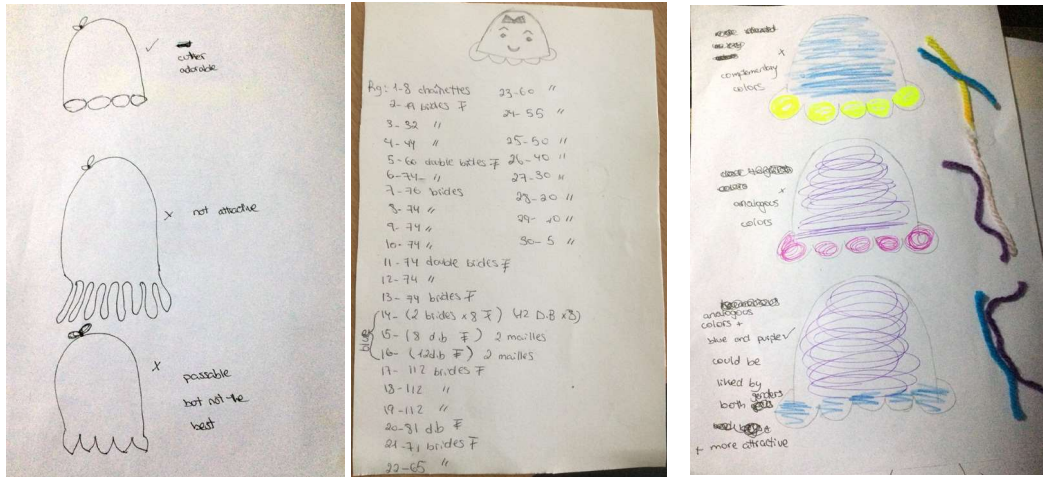 cutter
adorable
x not attractive
x
passable
but not the
best
Rg: 1-8 chainettes
2- brides F
3-32 "
4-44 "
5-60 double brides F
6-74- "
7-76 brides
8-74 "
9-74 "
10-74 "
11-74 double brides F
12-74 "
13-74 brides F
14-(2 brides x8 F) (42 D.B x8)
15-(8 d.b F) 2 mailles
16-(12d.b F) 2 mailles
blue
17-112 brides F
18-112 "
19-112 "
20-81 db F
21-71 brides F
22-65 "
23-60 "
24-55 "
25-50 "
26-40 "
27-30 "
28-20 "
29-10 "
30-5 "
x
complementary
colors
colors x
analogous
colors
analogous
colors +
blue and purple
could be
liked by
both genders
+ more attractive